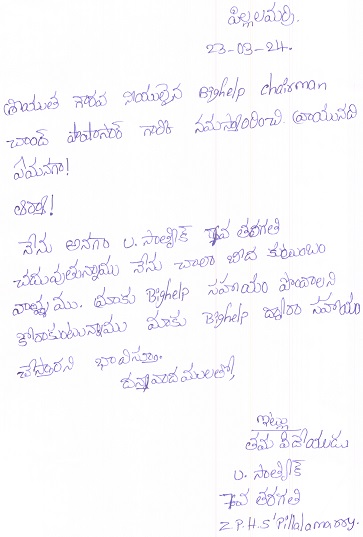 పిల్లలమర్రి.
23-03-24.
శ్రీయుత గౌరవ నీయులైన Bighelp chairman
చాంద్ పాషాసార్ గారికి నమస్కరించి వ్రాయునది
ఏమనగా!
ఆర్యా!
నేను అనగా U. సాత్విక్ 7వ తరగతి
చదువుతున్నాము నేను చాలా బీద కుటుంబం
వాళ్ళము. మాకు Bighelp సహాయం పొందాలని
కోరుకుంటున్నాము మాకు Bighelp ద్వారా సహాయం
చేస్తారని భావిస్తూ.
ధన్యవాదములతో,
ఇట్లు
తమ విదేయుడు
U. సాత్విక్
7వ తరగతి
Z.P.H.S' Pillalamarry.